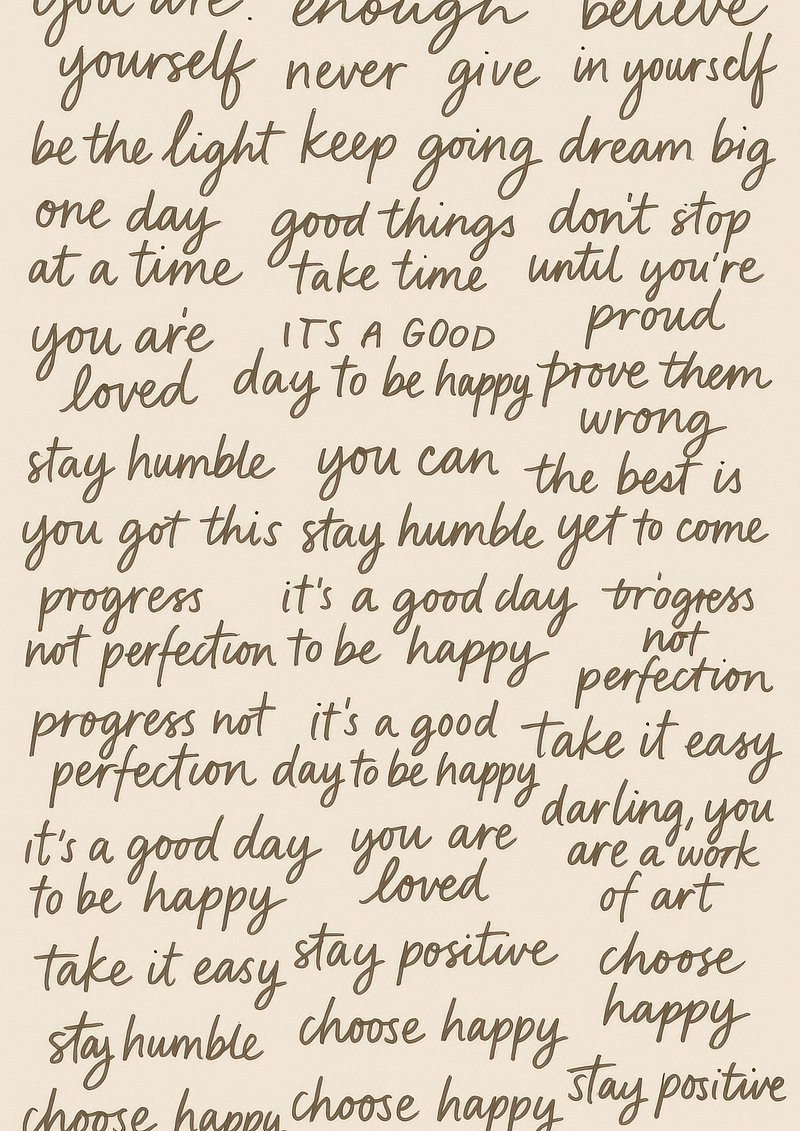 you are. enough believe
yourself never give in yourself
be the light keep going dream big
one day good things don't stop
at a time take time until you're
you are IT'S A GOOD proud
loved day to be happy prove them
wrong
stay humble you can the best is
you got this stay humble yet to come
progress it's a good day progress
not perfection to be happy not
perfection
progress not it's a good take it easy
perfection day to be happy
darling, you
it's a good day you are are a work
to be happy loved of art
take it easy stay positive choose
happy
stay humble choose happy
stay positive
choose happy choose happy